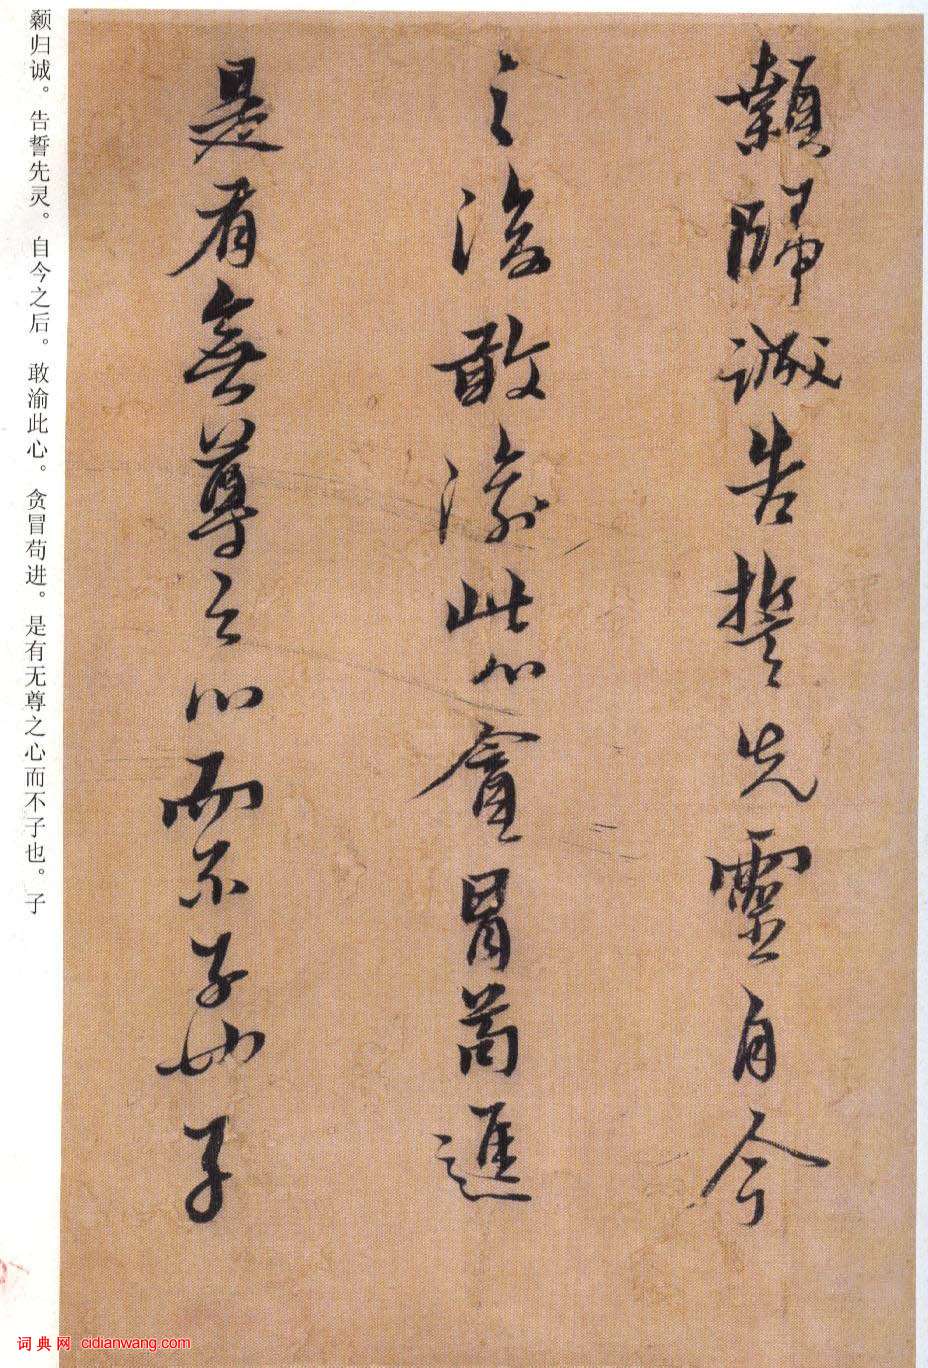 顙歸誠告誓先靈自今
之後敢渝此心貪冒苟進
是有無尊之心而不子也子
颡归诚。告誓先灵。自今之后。敢渝此心。贪冒苟进。是有无尊之心而不子也。子
词典网 cidianwang.com